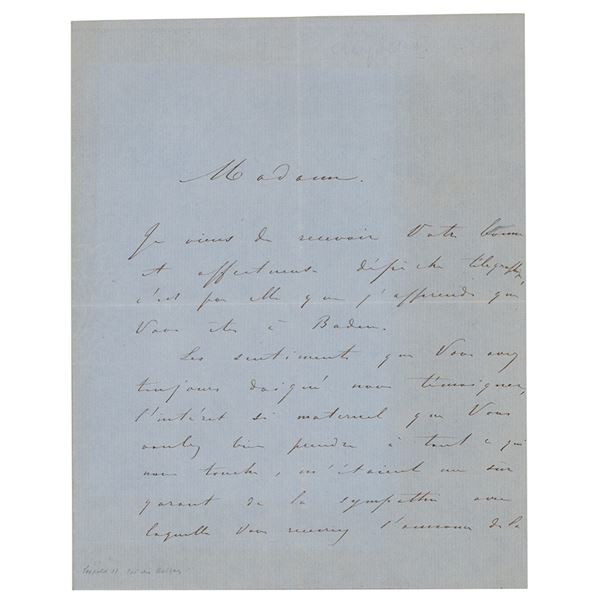 Madame.
Je viens de recevoir Votre bonne
et affectueuse dépêche télégraphique,
c'est par elle que j'apprends que
Vous êtes à Baden.
Les sentiments que Vous avez
toujours daigné nous témoigner,
l'intérêt si maternel que Vous
voulez bien prendre à tout ce qui
nous touche, m'étaient un sûr
garant de la sympathie avec
laquelle Vous recevrez l'annonce de la
Leopold II Roi des Belges